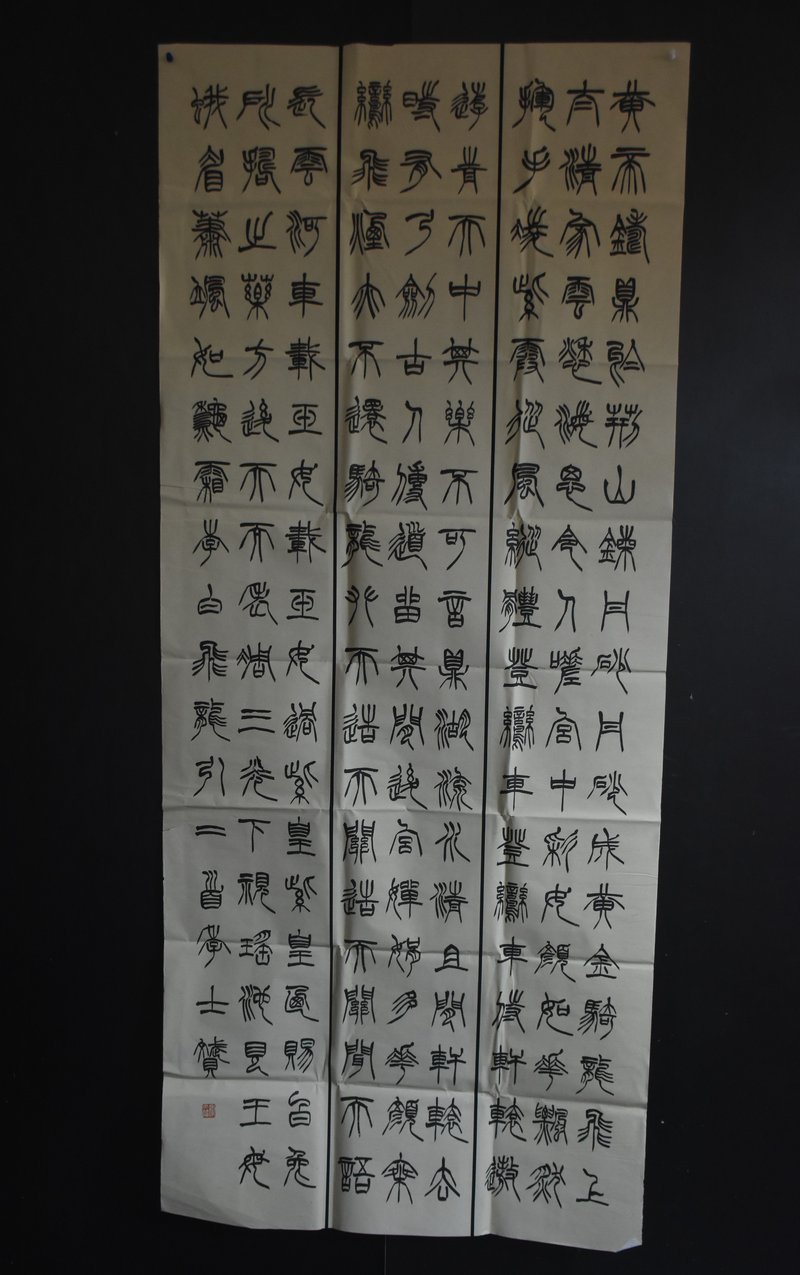 黃帝鑄鼎於荊山鍊丹砂丹砂成黃金騎龍飛上
太清家雲愁海思令人嗟宮中綵女顏如花飄然
揮手凌紫霞從風縱體登鸞車登鸞車侍軒轅遨
遊青天中其樂不可言鼎湖流水清且閒軒轅去
時有弓劍古人傳道留其間後宮嬋娟多花顏乘
鸞飛煙亦不還騎龍攀天造天關造天關聞天語
長雲河車載玉女載玉女過紫皇紫皇乃賜白兔
所擣之藥方後天而天老凋三光下視瑤池見王母
蛾眉蕭颯如秋霜李白飛龍引二首李士